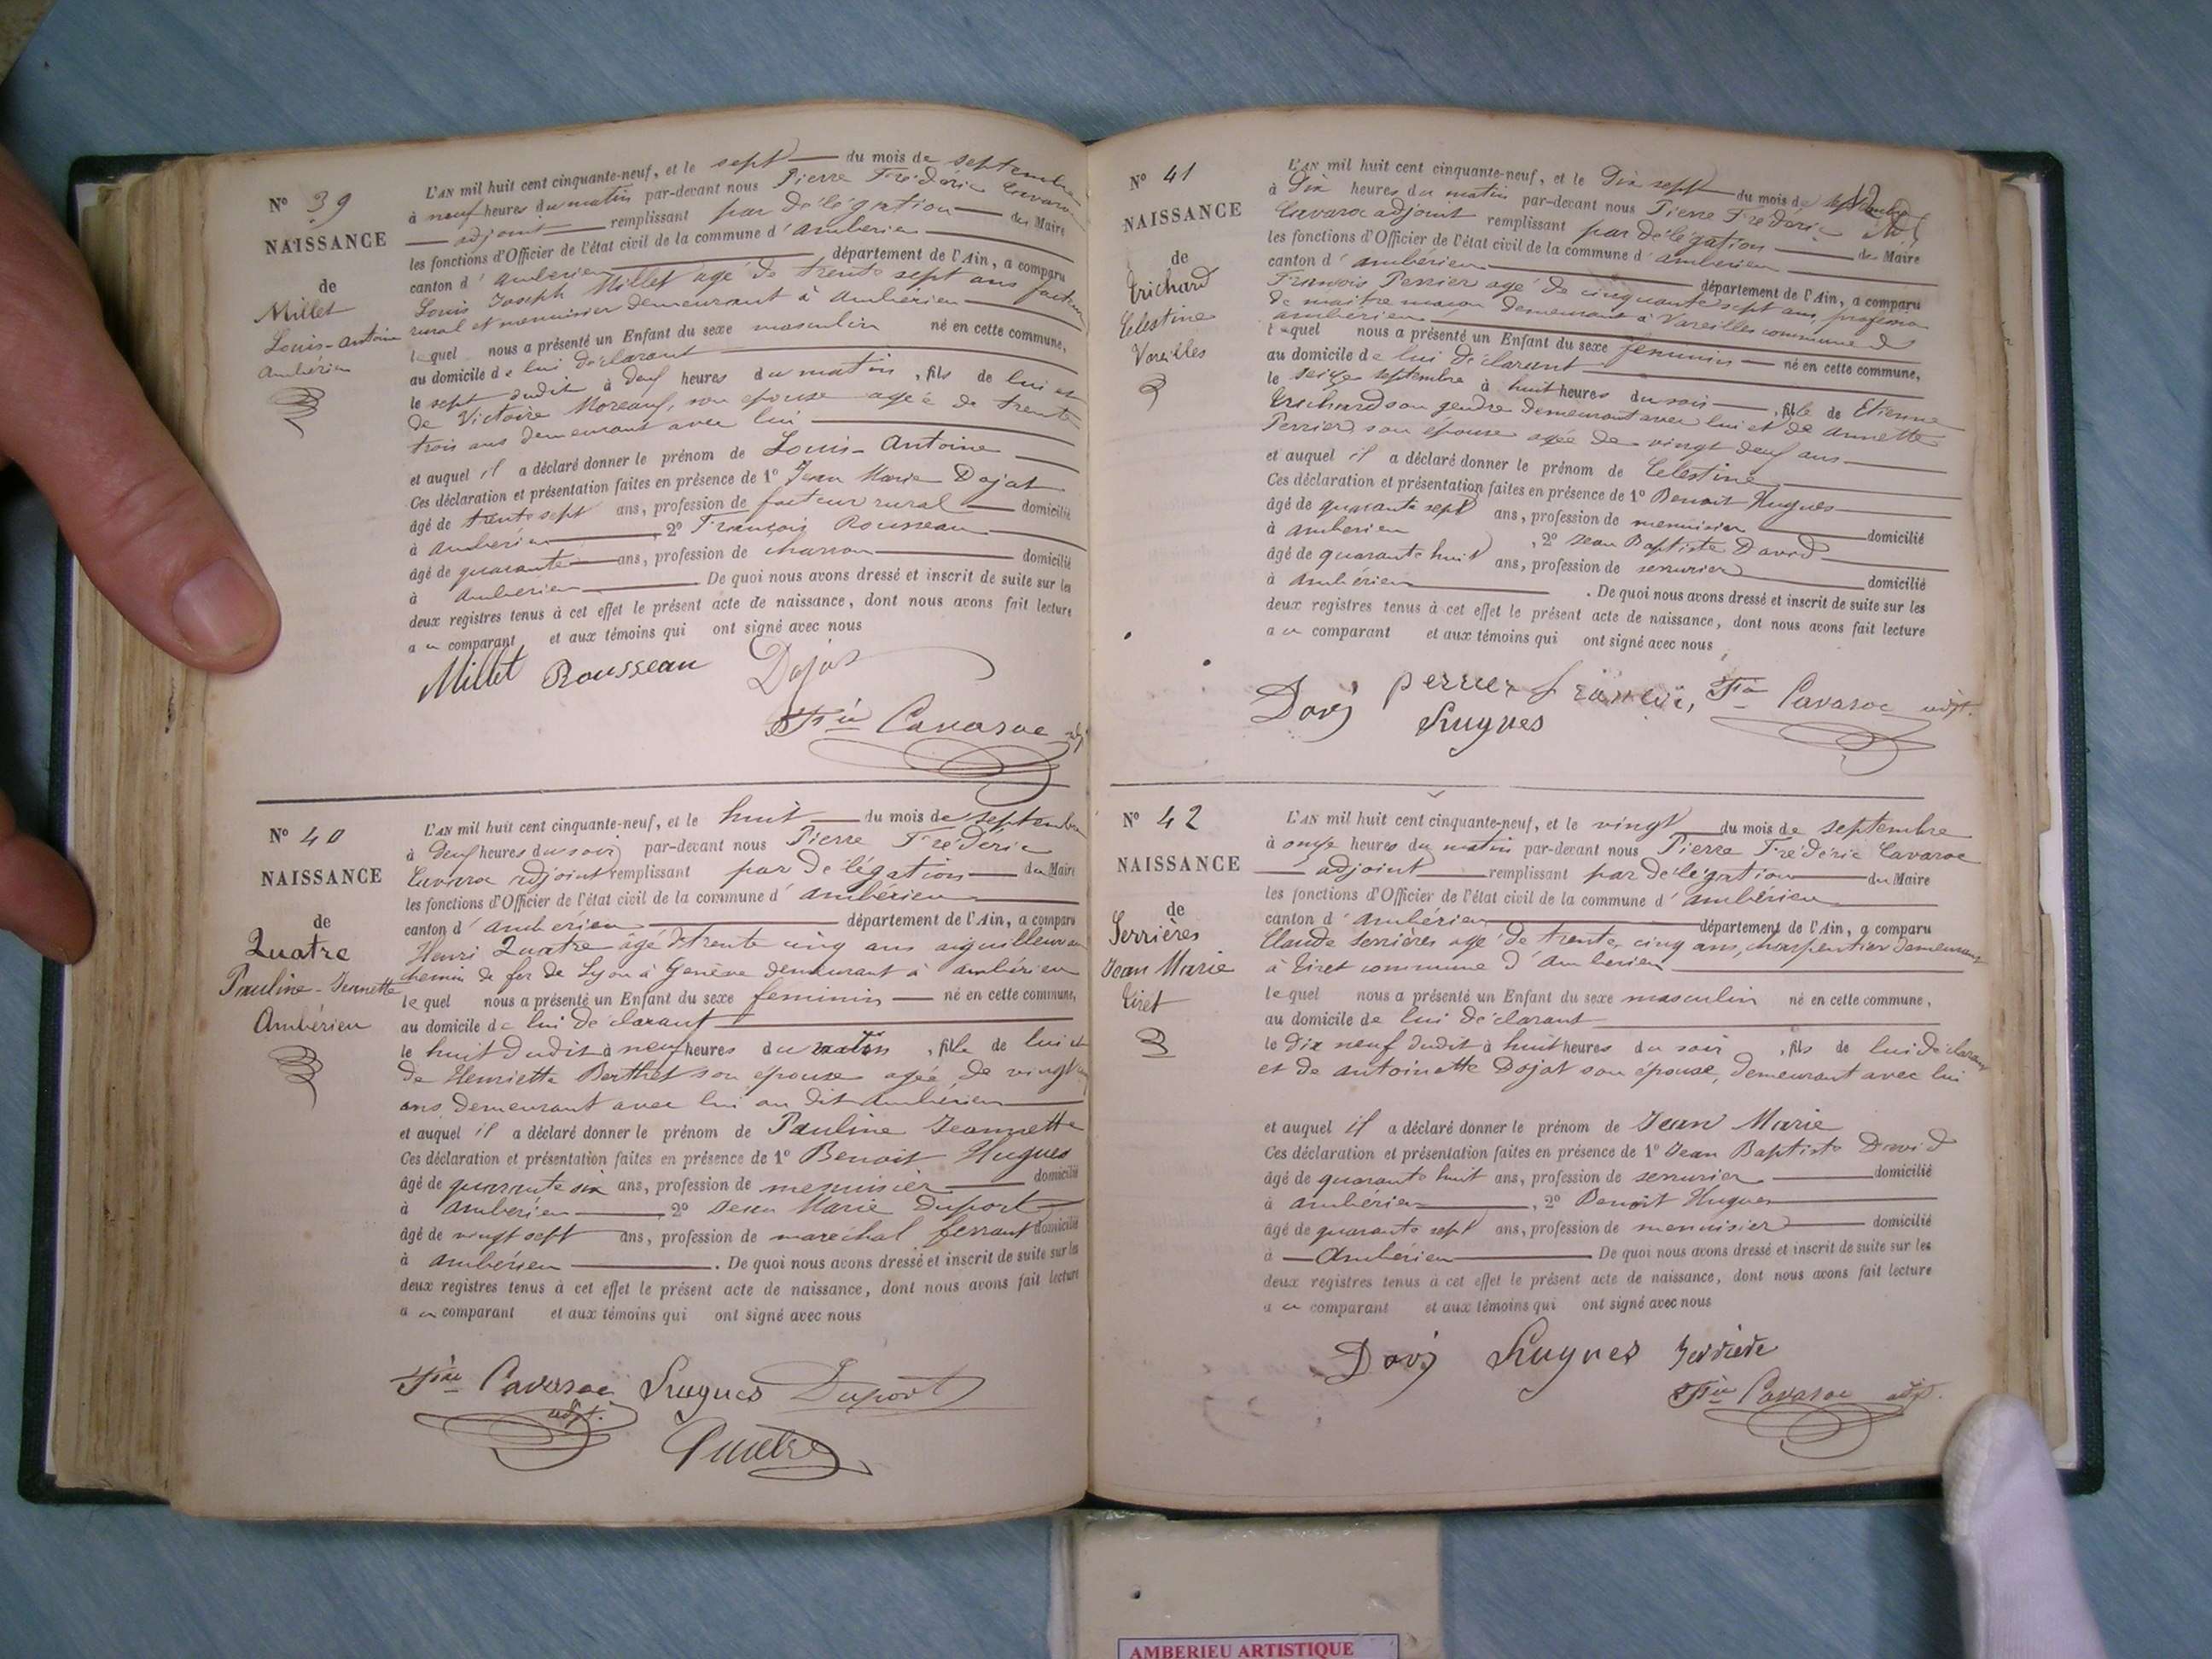 N° 39
NAISSANCE
de
Millet
Louis-Antoine
Ambérieu
L'AN mil huit cent cinquante-neuf, et le sept du mois de septembre
à neuf heures du matin par-devant nous Pierre Frédéric Cavaroc
adjoint remplissant par délégation du Maire
les fonctions d'Officier de l'état civil de la commune d'ambérieu
canton d'ambérieu département de l'Ain, a comparu
Louis Joseph Millet agé de trente sept ans facteur
rural et menuisier demeurant à Ambérieu
lequel nous a présenté un Enfant du sexe masculin né en cette commune,
au domicile de lui déclarant
le sept dudit à deux heures du matin, fils de lui et
de Victoire Moreaux, son epouse agée de trente
trois ans demeurant avec lui
et auquel il a déclaré donner le prénom de Louis-Antoine
Ces déclaration et présentation faites en présence de 1° Jean Marie Dojat
âgé de trente sept ans, profession de facteur rural domicilié
à ambérieu, 2° François Rousseau
âgé de quarante ans, profession de charron domicilié
à ambérieu. De quoi nous avons dressé et inscrit de suite sur les
deux registres tenus à cet effet le présent acte de naissance, dont nous avons fait lecture
au comparant et aux témoins qui ont signé avec nous
Millet Rousseau Dojat
Cavaroc adj
N° 40
NAISSANCE
de
Quatre
Pauline-Jeannette
Ambérieu
L'AN mil huit cent cinquante-neuf, et le huit du mois de septembre
à deux heures du soir par-devant nous Pierre Frédéric
Cavaroc adjoint remplissant par délégation du Maire
les fonctions d'Officier de l'état civil de la commune d'ambérieu
canton d'ambérieu département de l'Ain, a comparu
Henri Quatre âgé de trente cinq ans aiguilleur au
chemin de fer de Lyon à Genève demeurant à ambérieu
lequel nous a présenté un Enfant du sexe feminin né en cette commune,
au domicile de lui déclarant
le huit dudit à neuf heures du matin, fille de lui et
de Henriette Berthet son epouse agée de vingt
ans demeurant avec lui au dit Ambérieu
et auquel il a déclaré donner le prénom de Pauline Jeannette
Ces déclaration et présentation faites en présence de 1° Benoit Hugues
âgé de quarante six ans, profession de menuisier domicilié
à ambérieu, 2° Jean Marie Duport
âgé de vingt sept ans, profession de marechal ferrant domicilié
à ambérieu. De quoi nous avons dressé et inscrit de suite sur les
deux registres tenus à cet effet le présent acte de naissance, dont nous avons fait lecture
au comparant et aux témoins qui ont signé avec nous
Cavaroc Hugues Duport
adjt.
Quatre
N° 41
NAISSANCE
de
Trichard
Celestine
Vareilles
L'AN mil huit cent cinquante-neuf, et le dix sept du mois de septembre
à dix heures du matin par-devant nous Pierre Frédéric
Cavaroc adjoint remplissant par délégation de Maire
les fonctions d'Officier de l'état civil de la commune d'ambérieu
canton d'ambérieu département de l'Ain, a comparu
François Perrier agé de cinquante sept ans, profession
de maitre maçon demeurant à Vareilles commune d
ambérieu
lequel nous a présenté un Enfant du sexe feminin né en cette commune,
au domicile de lui déclarant
le seize septembre à huit heures du soir, fille de Etienne
Trichard son gendre demeurant avec lui et de Annette
Perrier, son epouse agée de vingt deux ans
et auquel il a déclaré donner le prénom de Celestine
Ces déclaration et présentation faites en présence de 1° Benoit Hugues
âgé de quarante sept ans, profession de menuisier domicilié
à ambérieu, 2° Jean Baptiste David
âgé de quarante huit ans, profession de serrurier domicilié
à Ambérieu. De quoi nous avons dressé et inscrit de suite sur les
deux registres tenus à cet effet le présent acte de naissance, dont nous avons fait lecture
au comparant et aux témoins qui ont signé avec nous
perrier Cavaroc adjt.
Hugues
N° 42
NAISSANCE
de
Serrières
Jean Marie
Tiret
L'AN mil huit cent cinquante-neuf, et le vingt du mois de septembre
à onze heures du matin par-devant nous Pierre Frédéric Cavaroc
adjoint remplissant par délégation du Maire
les fonctions d'Officier de l'état civil de la commune d'ambérieu
canton d'ambérieu département de l'Ain, a comparu
Claude Serrières agé de trente cinq ans, charpentier demeurant
à Tiret commune d'Ambérieu
lequel nous a présenté un Enfant du sexe masculin né en cette commune,
au domicile de lui déclarant
le dix neuf dudit à huit heures du soir, fils de lui déclarant
et de antoinette Dojat son épouse, demeurant avec lui
et auquel il a déclaré donner le prénom de Jean Marie
Ces déclaration et présentation faites en présence de 1° Jean Baptiste David
âgé de quarante huit ans, profession de serrurier domicilié
à ambérieu, 2° Benoit Hugues
âgé de quarante sept ans, profession de menuisier domicilié
à Ambérieu. De quoi nous avons dressé et inscrit de suite sur les
deux registres tenus à cet effet le présent acte de naissance, dont nous avons fait lecture
au comparant et aux témoins qui ont signé avec nous
Hugues
Cavaroc adjt.
AMBERIEU ARTISTIQUE